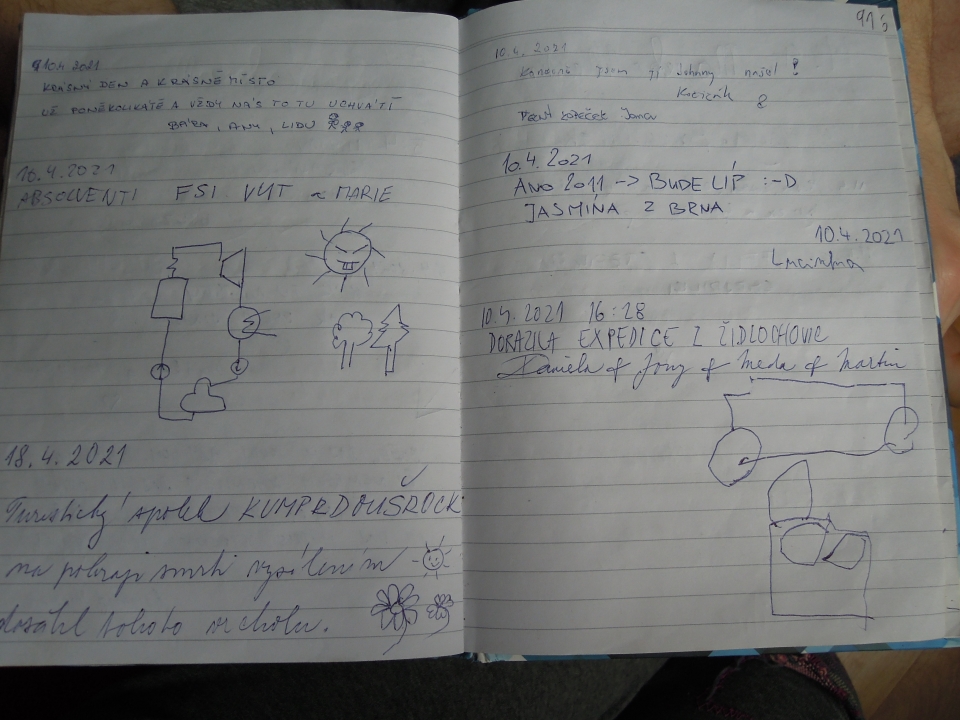 10.4.2021
KRÁSNÝ DEN A KRÁSNÉ MÍSTO
UŽ PONĚKOLIKÁTÉ A VŽDY NÁS TO TU UCHVÁTÍ
BÁRA, ANY, LIDU
16.4.2021
ABSOLVENTI FSI VUT MARIE
18.4.2021
Turistický spolek KUMPRDOUŠROCK
na pokraji smrti vysílením
dosáhl tohoto vrcholu.
913
10.4.2021
jsem Johnny našel!
10.4.2021
ANO 2011 -> BUDE LÍP :-D
JASMÍNA Z BRNA
10.4.2021
10.4.2021 16:28
DORAZILA EXPEDICE Z ŽIDLOCHOVIC
Daniela & Jony & Meda & Martin